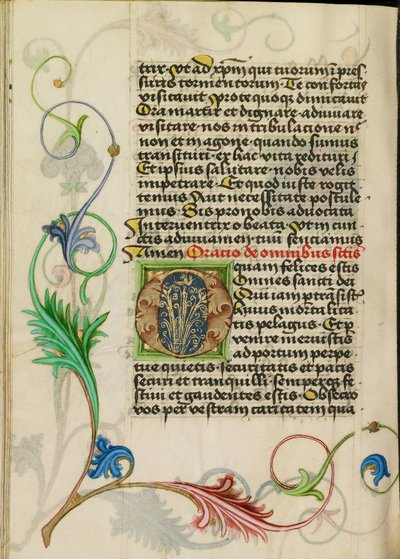 tur. Vt ad xpm qui tuorum i pres
suris tormentorum. Te confortās
visitavit. Pro te quoq dimicavit
Ora martir et dignare adiuvare
visitare nos in tribulacione n̄
non et in agone. quando sumus
transituri. ex hac vita reddituri.
Et ipsius salutare. nobis velis
impetrare. Et quod iuste rogit
temus Aut necessitate postule
mus. Sis pro nobis advocata
Interventrix o beata. Vt in cun
ctis adiuuamen. tui sentiamus
Amen. Oratio de omnibus sctis
O quam felices estis
Omnes sancti dei
Qui iam p̄transistis
huius mortalita
tis pelagus. Et p
venire meruistis
ad portum perpe
tue quietis. securitatis et pacis
securi et tranquilli. semper q fe
stivi et gaudentes estis. Obsecro
vos per vestram caritatem qua